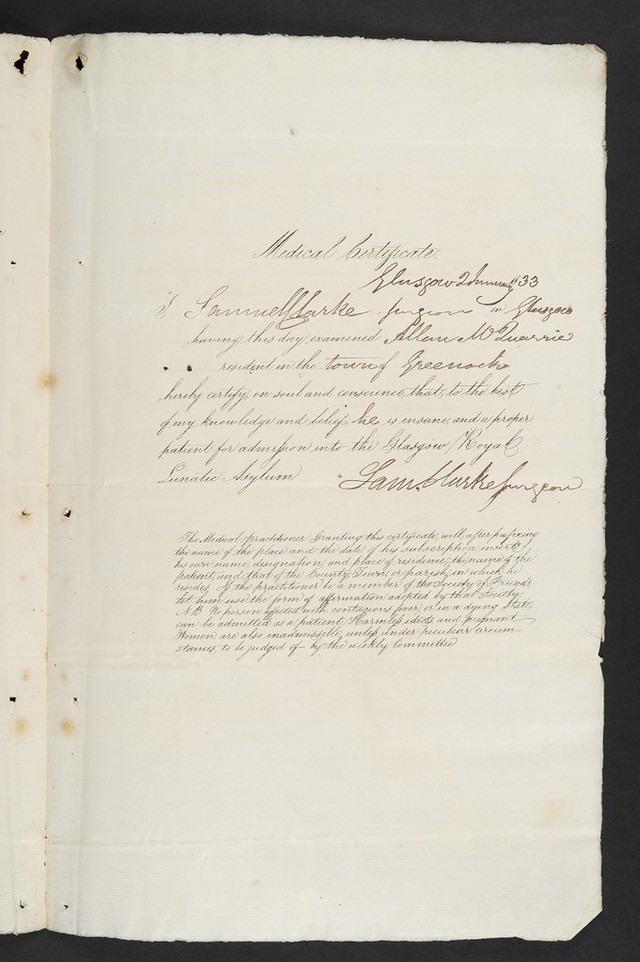 Medical Certificate.
Glasgow 2 January 1833
I Samuel Clarke surgeon in Glasgow
having this day examined Allan McQuarrie
resident in the town of Greenock
hereby certify on soul and conscience, that, to the best
of my knowledge and belief, he is insane, and a proper
patient for admission into the Glasgow Royal
Lunatic Asylum
Sam. Clarke surgeon
The Medical practitioner Granting this certificate, will, after prefixing
the name of the place and the date of his subscription insert
his own name, designation, and place of residence, the name of the
patient, and that of the County, Town, or parish, in which he
resides. If the practitioner be a member of the Society of Friends
let him use the form of affirmation adopted by that Society.
N.B. No person affected with contagious fever or in a dying State,
can be admitted as a patient. Harmless idiots and pregnant
Women are also inadmissible, unless under peculiar circum-
stances, to be judged of by the weekly Committee